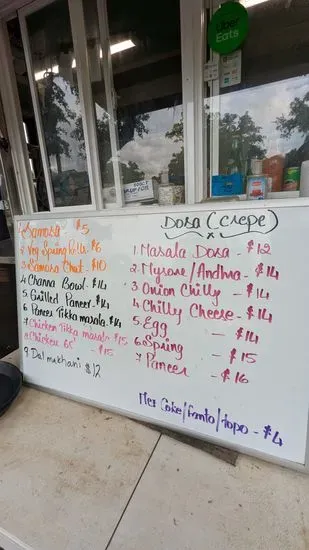 Uber
Eats
1 Samosa - $5
2 Veg Spring Rolls $6
3 Samosa Chat - $10
4 Channa Bowl - $14
5 Grilled Paneer - $14
6 Paneer Tikka masala - $14
7 Chicken Tikka masala $15
8 Chicken 65 - $15
9 Dal mukhani $12
Dosa (Crepe)
1. Masala Dosa - $12
2. Mysore/Andhra - $14
3 Onion Chilly - $14
4 Chilly Cheese - $14
5. Egg - $14
6 Spring - $15
7 Paneer - $16
Mex Coke/Fanta/topo - $4